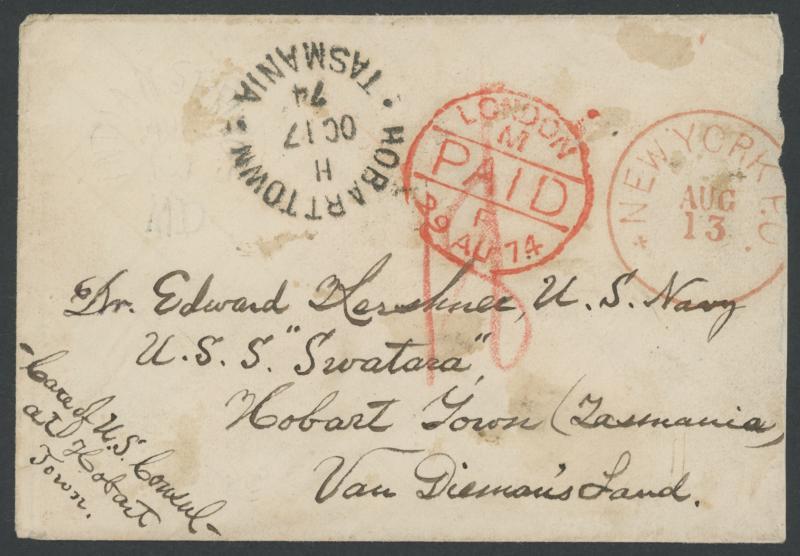 HOBART TOWN • TASMANIA •
H
OC 17
74
LONDON
M
PAID
F
29 AU 74
NEW YORK P.O
AUG
13
Dr. Edward Kershner, U.S. Navy
U.S.S. "Swatara",
Hobart Town (Tasmania)
Van Dieman's Land.
Care of U.S. Consul-
at Hobart
Town.